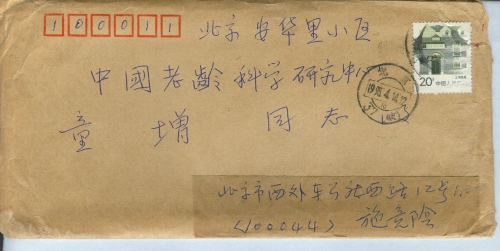 100011
北京安华里小区
中國老齡科学研究中心
童增同志
20分 中国人民邮政
北京
1995.4.14.
北京市西外车公庄西路12号
(100044) 施